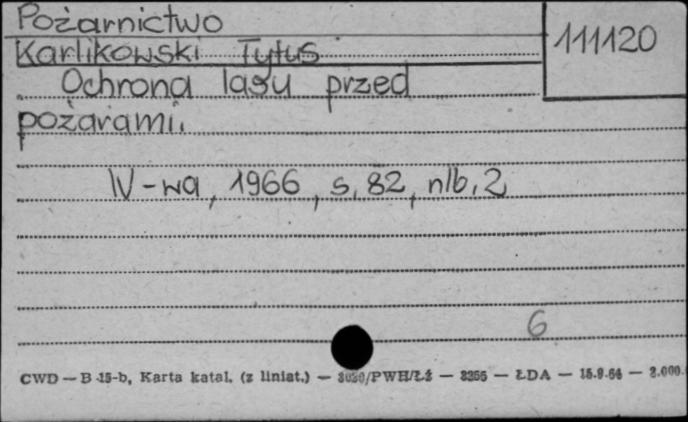 Pożarnictwo
111120
Karlikowski Tytus
Ochrona lasu przed
pożarami.
W-wa, 1966, s. 82, nlb. 2
6
CWD — B 15-b, Karta katal. (z liniat.) — /PWH/Łż — — ŁDA — 15.9.64 — 2.000.